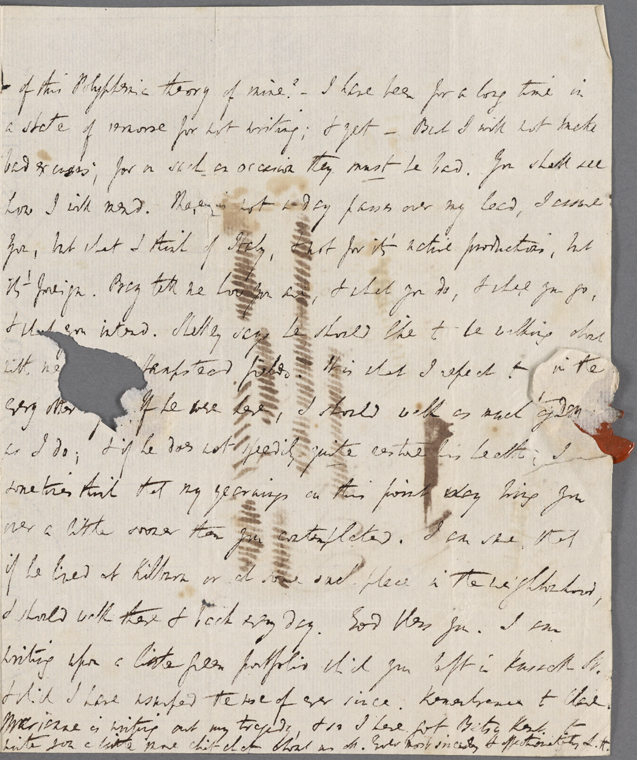 - of this Polyphemic theory of mine? - I have been for a long time in
a state of remorse for not writing; & yet - But I will not make
bad excuses; for on such an occasion they must be bad. You shall see
how I will mend. not a day passes over my head, I assure
you, but what I think of Italy, & not for it's native productions, but
it's foreign. Pray tell me how you are, & what you do, & where you go,
& what you intend. Shelley says he should like to be walking about
with me Hampstead fields. It is what I expect to in the
every other If he were here, I should walk as much again
as I do; & if he does not speedily quite restore his health, I
sometimes think that my yearnings on this point may bring you
over a little sooner than you contemplated. I am sure, that
if he lived at Kilburn or at some such place in the neighbourhood,
I should walk there & back every day. God bless you. I am
writing upon a little green portfolio which you left in Russell St.
& which I have usurped the use of ever since. Remembrance to Clare.
Marianne is writing out my tragedy, & so I have got Bessy Kent to
write you a little more chit chat about us all. Ever most sincerely & affectionately L. H.